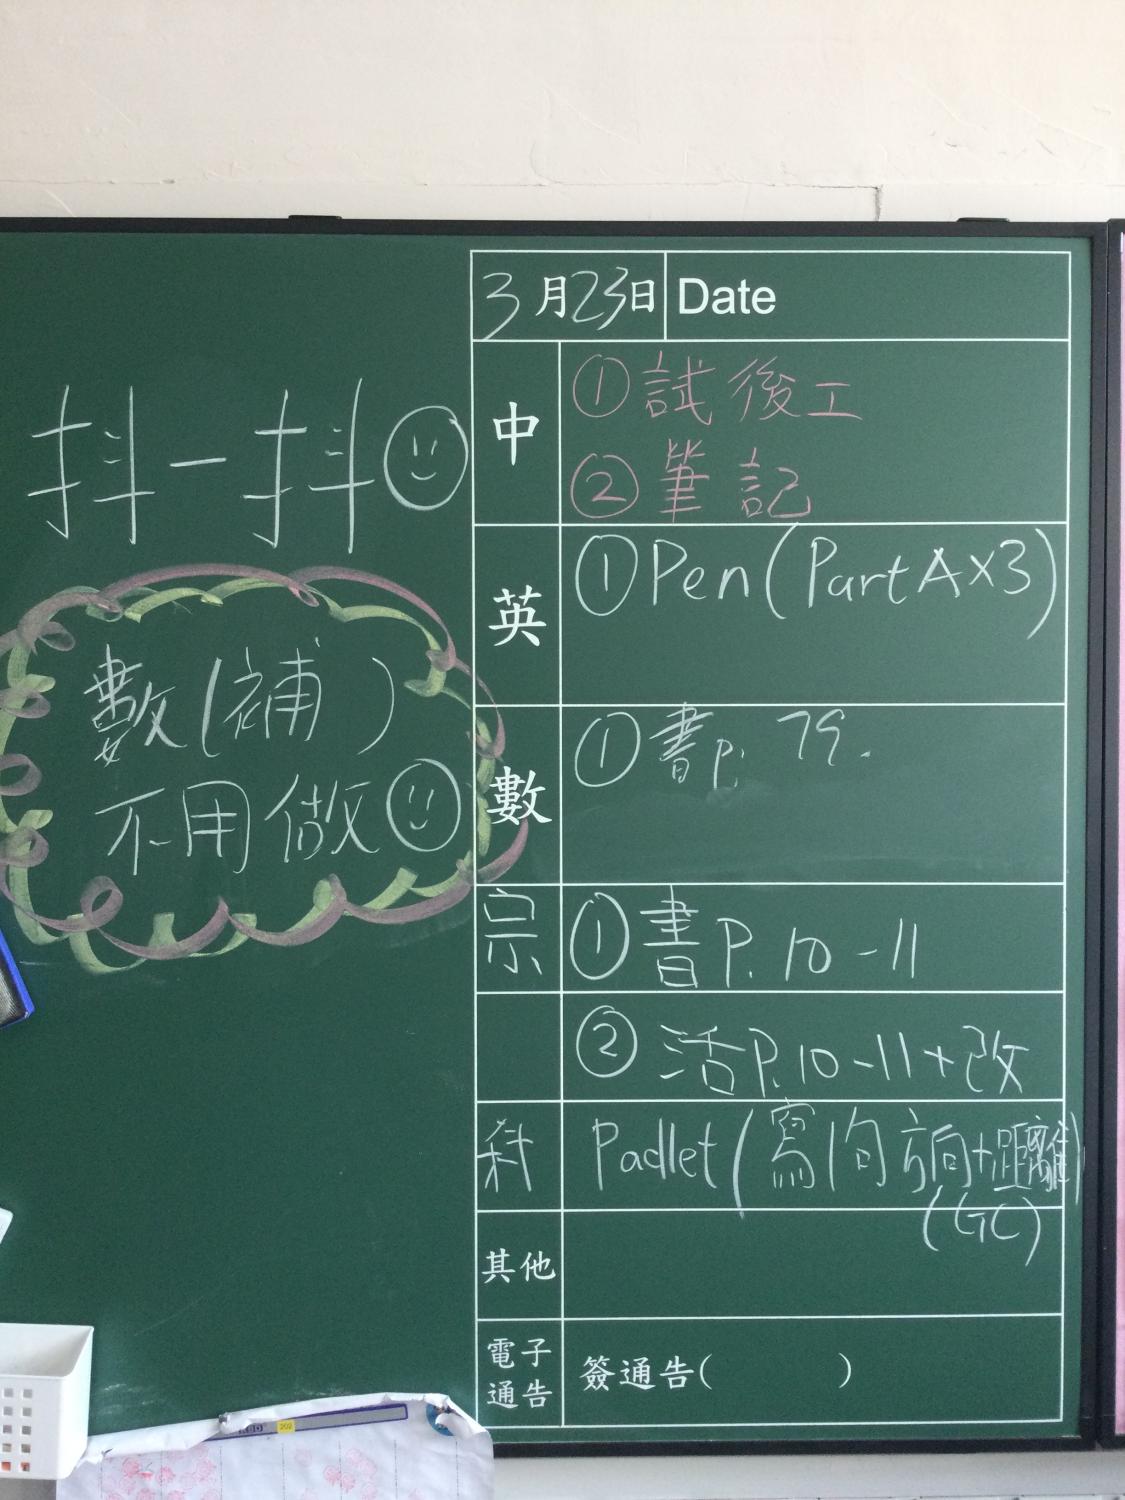 3月23日 Date
中
①試後工
②筆記
英
①Pen(Part A×3)
數
①書p. 79.
宗
①書P. 10-11
②活P. 10-11+改
科
Padlet(寫句方向+距離)
(GC)
其他
電子
通告
簽通告( )
抖一抖
數(補)
不用做
202